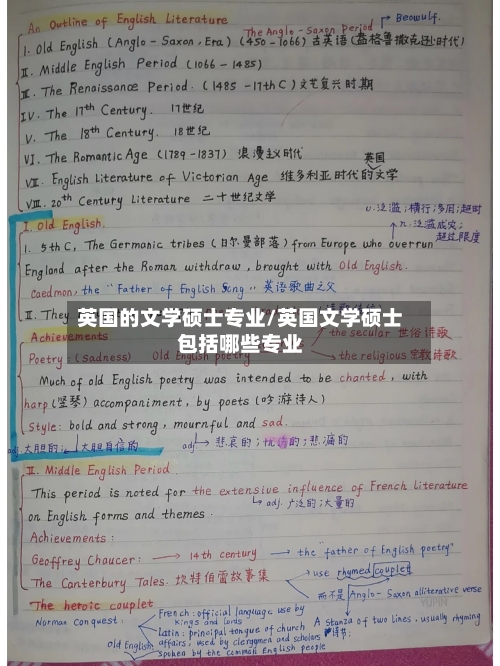 An Outline of English Literature
The Anglo-Saxon Period
Beowulf.
I. Old English (Anglo-Saxon, Era) (450-1066) 古英语(盎格鲁撒克逊时代)
II. Middle English Period (1066-1485)
III. The Renaissance Period. (1485-17th C) 文艺复兴时期
IV. The 17th Century. 17世纪
V. The 18th Century. 18世纪
VI. The Romantic Age (1789-1837) 浪漫主义时代
英国
VII. English Literature of Victorian Age 维多利亚时代的文学
VIII. 20th Century Literature 二十世纪文学
v.泛滥;横行;多用;超时
n.泛滥成灾;
超过限度
I. Old English.
1. 5th C, The Germanic tribes (日尔曼部落) from Europe who overrun
England after the Roman withdraw, brought with Old English.
Caedmon, the "Father of English Song" 英语歌曲之父
II. They
英国的文学硕士专业/英国文学硕士
包括哪些专业
Achievements
the secular 世俗诗歌
Poetry: (sadness) Old English poetry
the religious 宗教诗歌
Much of old English poetry was intended to be chanted, with
harp (竖琴) accompaniment, by poets (吟游诗人)
Style: bold and strong, mournful and sad.
adj.大胆的; 大胆自信的
adj. 悲哀的;忧伤的;悲痛的
II. Middle English Period.
This period is noted for the extensive influence of French Literature
on English forms and themes.
adj. 广泛的;大量的
Achievements:
Geoffrey Chaucer: 14th century the "father of English poetry"
The Canterbury Tales. 坎特伯雷故事集
use rhymed couplet
而不是 Anglo-Saxon alliterative verse
The heroic couplet
Norman Conquest:
French: official language use by
kings and lords
A Stanza of two lines, usually rhyming
Latin: principal tongue of church
affairs, used by clergymen and scholars
Old English: spoken by the common English people